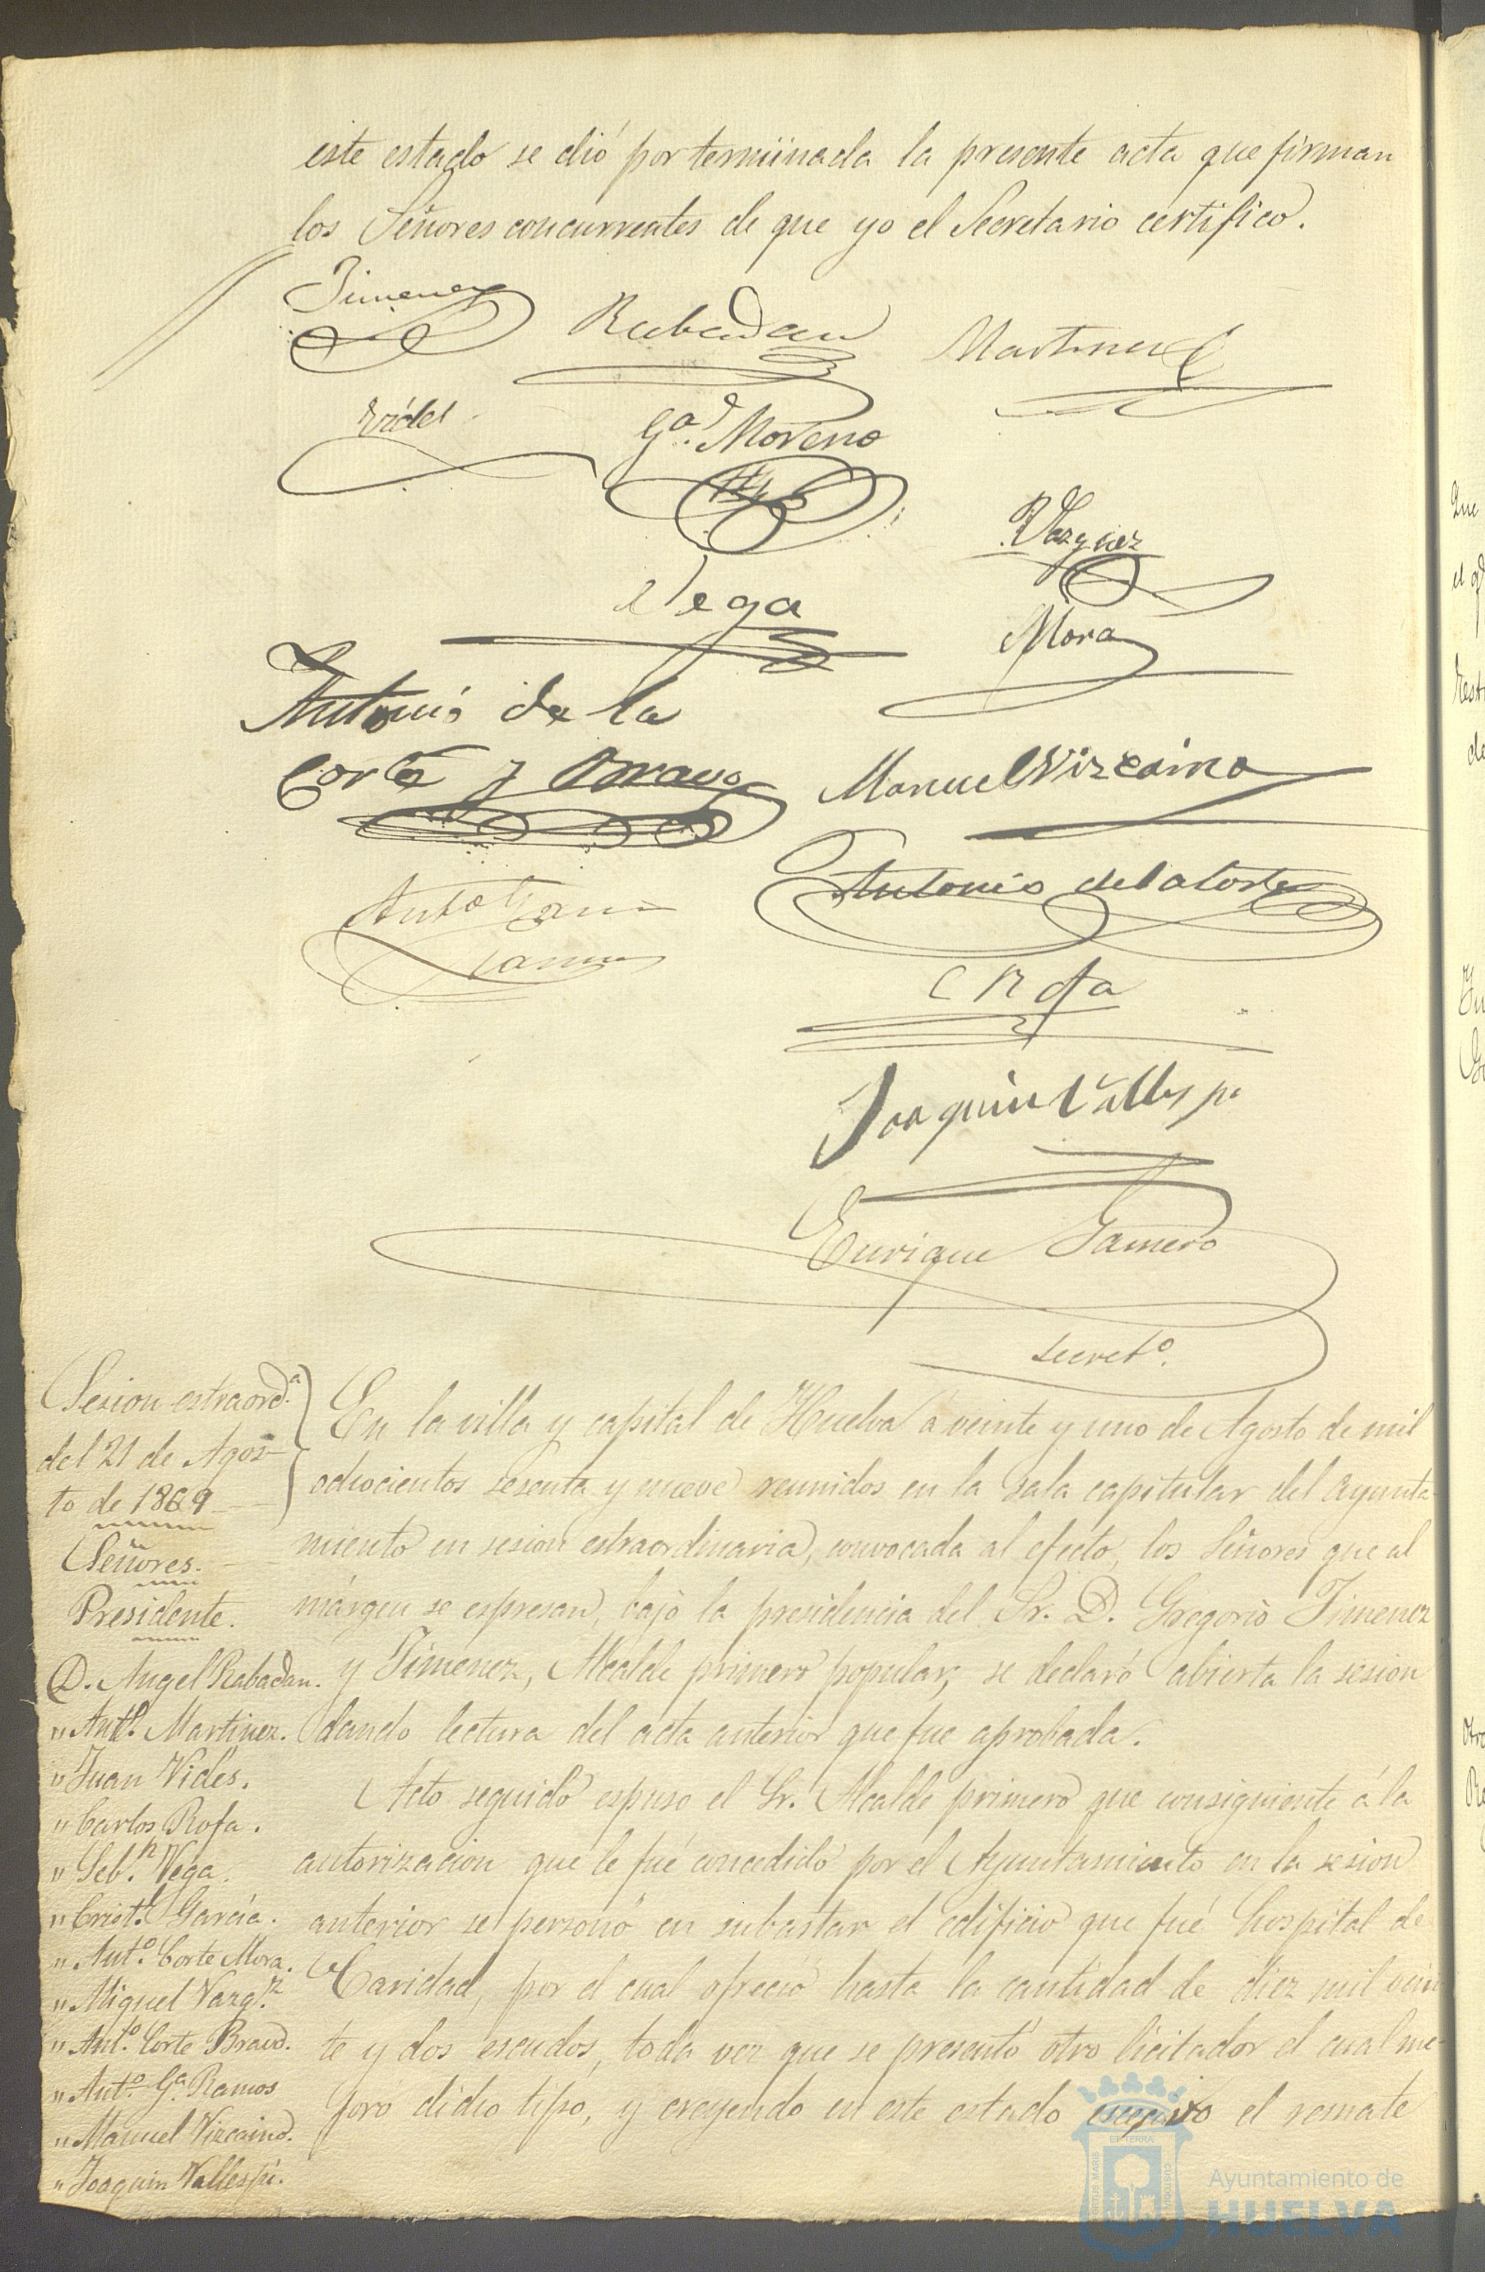 este estado se dió por terminada la presente acta que firman
los Señores concurrentes de que yo el Secretario certifico.
Jimenez
Rabadan
Martinez
Vides
Gª Moreno
Vazquez
Vega
Mora
Antonio de la
Corte y Bravo
Manuel Vizcaino
Antonio de la Corte
Antº
Ramos
C Rofa
Joaquin Vallespi
Enrique Gamero
Secretº.
Sesion estraordª
del 21 de Agos-
to de 1869
Señores.
Presidente.
D. Angel Rabadan.
" Antº. Martinez.
" Juan Vides.
" Carlos Rofa.
" Seb.n Vega.
" Crist.l García.
" Antº. Corte Mora.
" Miguel Vazq.z
" Antº. Corte Bravo.
" Antº. Gª. Ramos
" Manuel Vizcaino.
" Joaquin Vallespí.
En la villa y capital de Huelva á veinte y uno de Agosto de mil
ochocientos sesenta y nueve reunidos en la sala capitular del Ayunta-
miento en sesion estraordinaria, convocada al efecto, los Señores que al
márgen se espresan, bajo la presidencia del Sr. D. Gregorio Jimenez
y Jimenez, Alcalde primero popular, se declaró abierta la sesion
dando lectura del acta anterior que fue aprobada.
Acto seguido espuso el Sr. Alcalde primero que consiguiente á la
autorizacion que le fué concedida por el Ayuntamiento en la sesion
anterior se personó en subastar el edificio que fué hospital de
Caridad, por el cual ofreció hasta la cantidad de diez mil vein
te y dos escudos, toda vez que se presentó otro licitador el cual me-
joró dicho tipo, y creyendo en este estado escesivo el remate
Ayuntamiento de
HUELVA